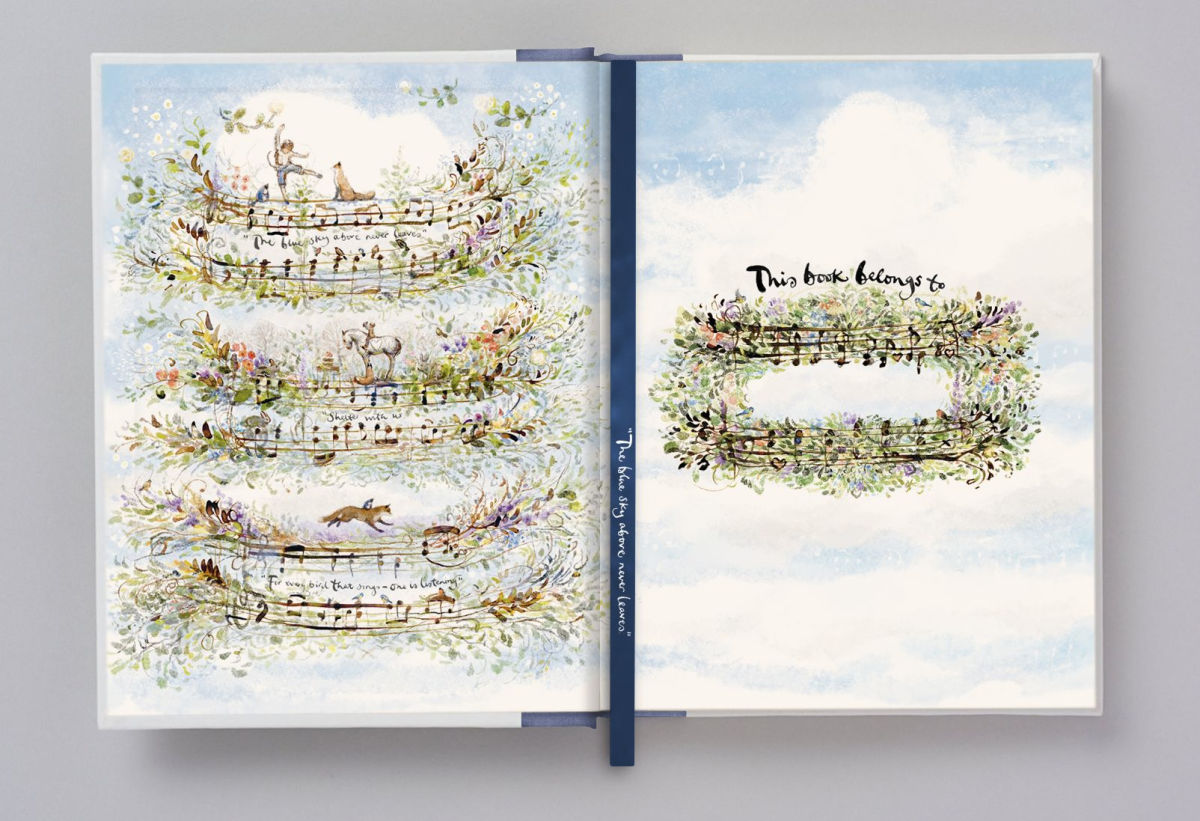 "The blue sky above never leaves"
"Share with us
"For every bird that sings – one is listening"
"The blue sky above never leaves"
This book belongs to